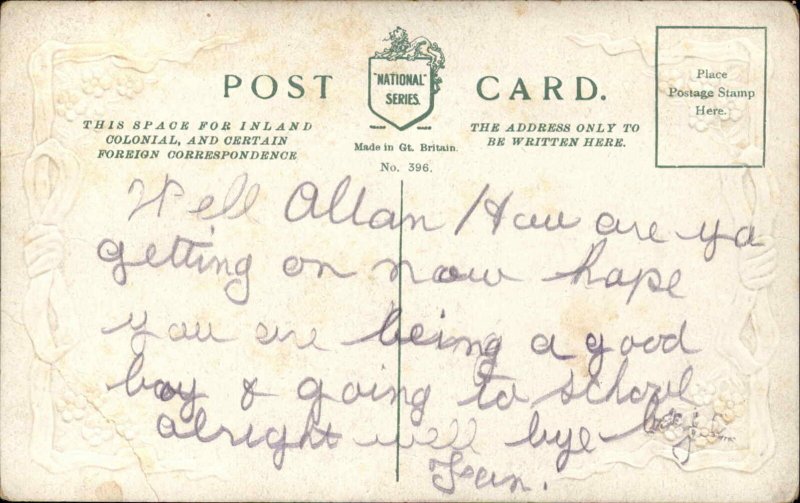 POST CARD.
"NATIONAL"
SERIES.
Place
Postage Stamp
Here.
THIS SPACE FOR INLAND
COLONIAL, AND CERTAIN
FOREIGN CORRESPONDENCE
Made in Gt. Britain.
No. 396.
THE ADDRESS ONLY TO
BE WRITTEN HERE.
Well Allan How are ya
getting on now hope
you are being a good
boy & going to school
alright well bye bye